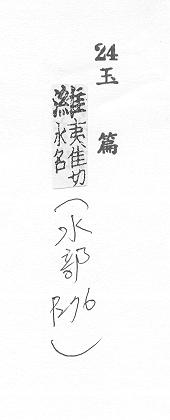 24
玉篇
濰 夷隹切
水名
(水部 )